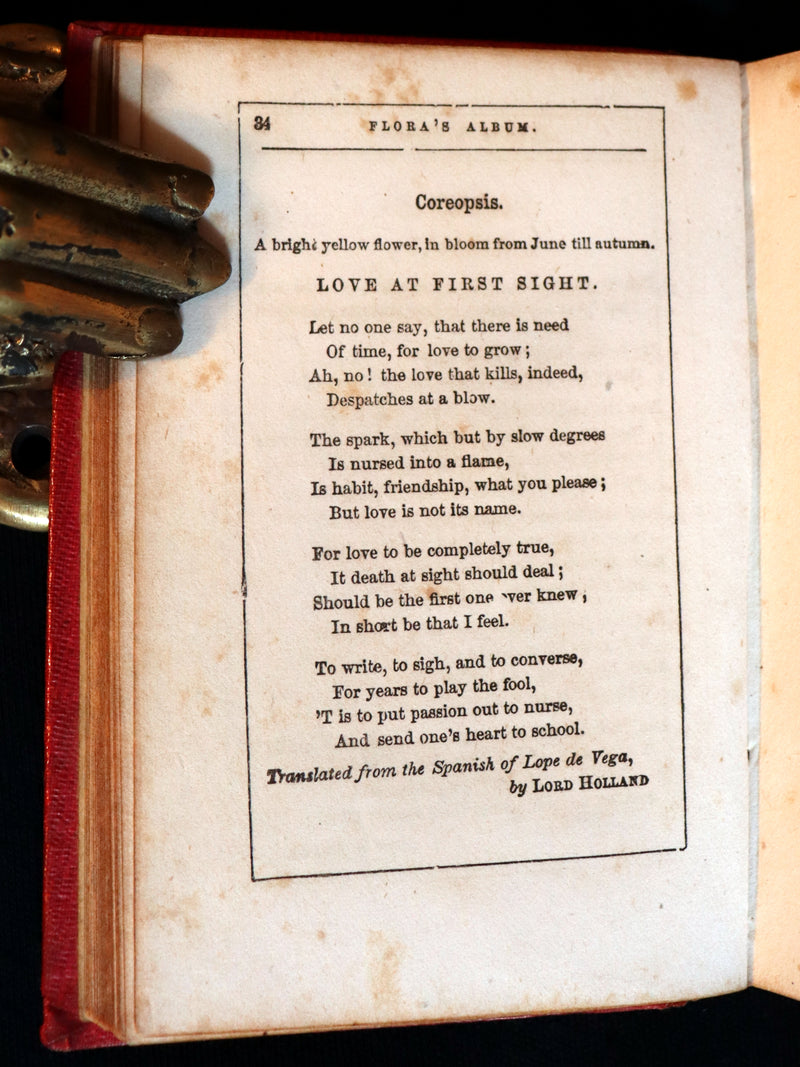 34 FLORA'S ALBUM.
Coreopsis.
A bright yellow flower, in bloom from June till autumn.
LOVE AT FIRST SIGHT.
Let no one say, that there is need
Of time, for love to grow;
Ah, no! the love that kills, indeed,
Despatches at a blow.
The spark, which but by slow degrees
Is nursed into a flame,
Is habit, friendship, what you please;
But love is not its name.
For love to be completely true,
It death at sight should deal;
Should be the first one 'ver knew,
In short be that I feel.
To write, to sigh, and to converse,
For years to play the fool,
'T is to put passion out to nurse,
And send one's heart to school.
Translated from the Spanish of Lope de Vega,
by LORD HOLLAND